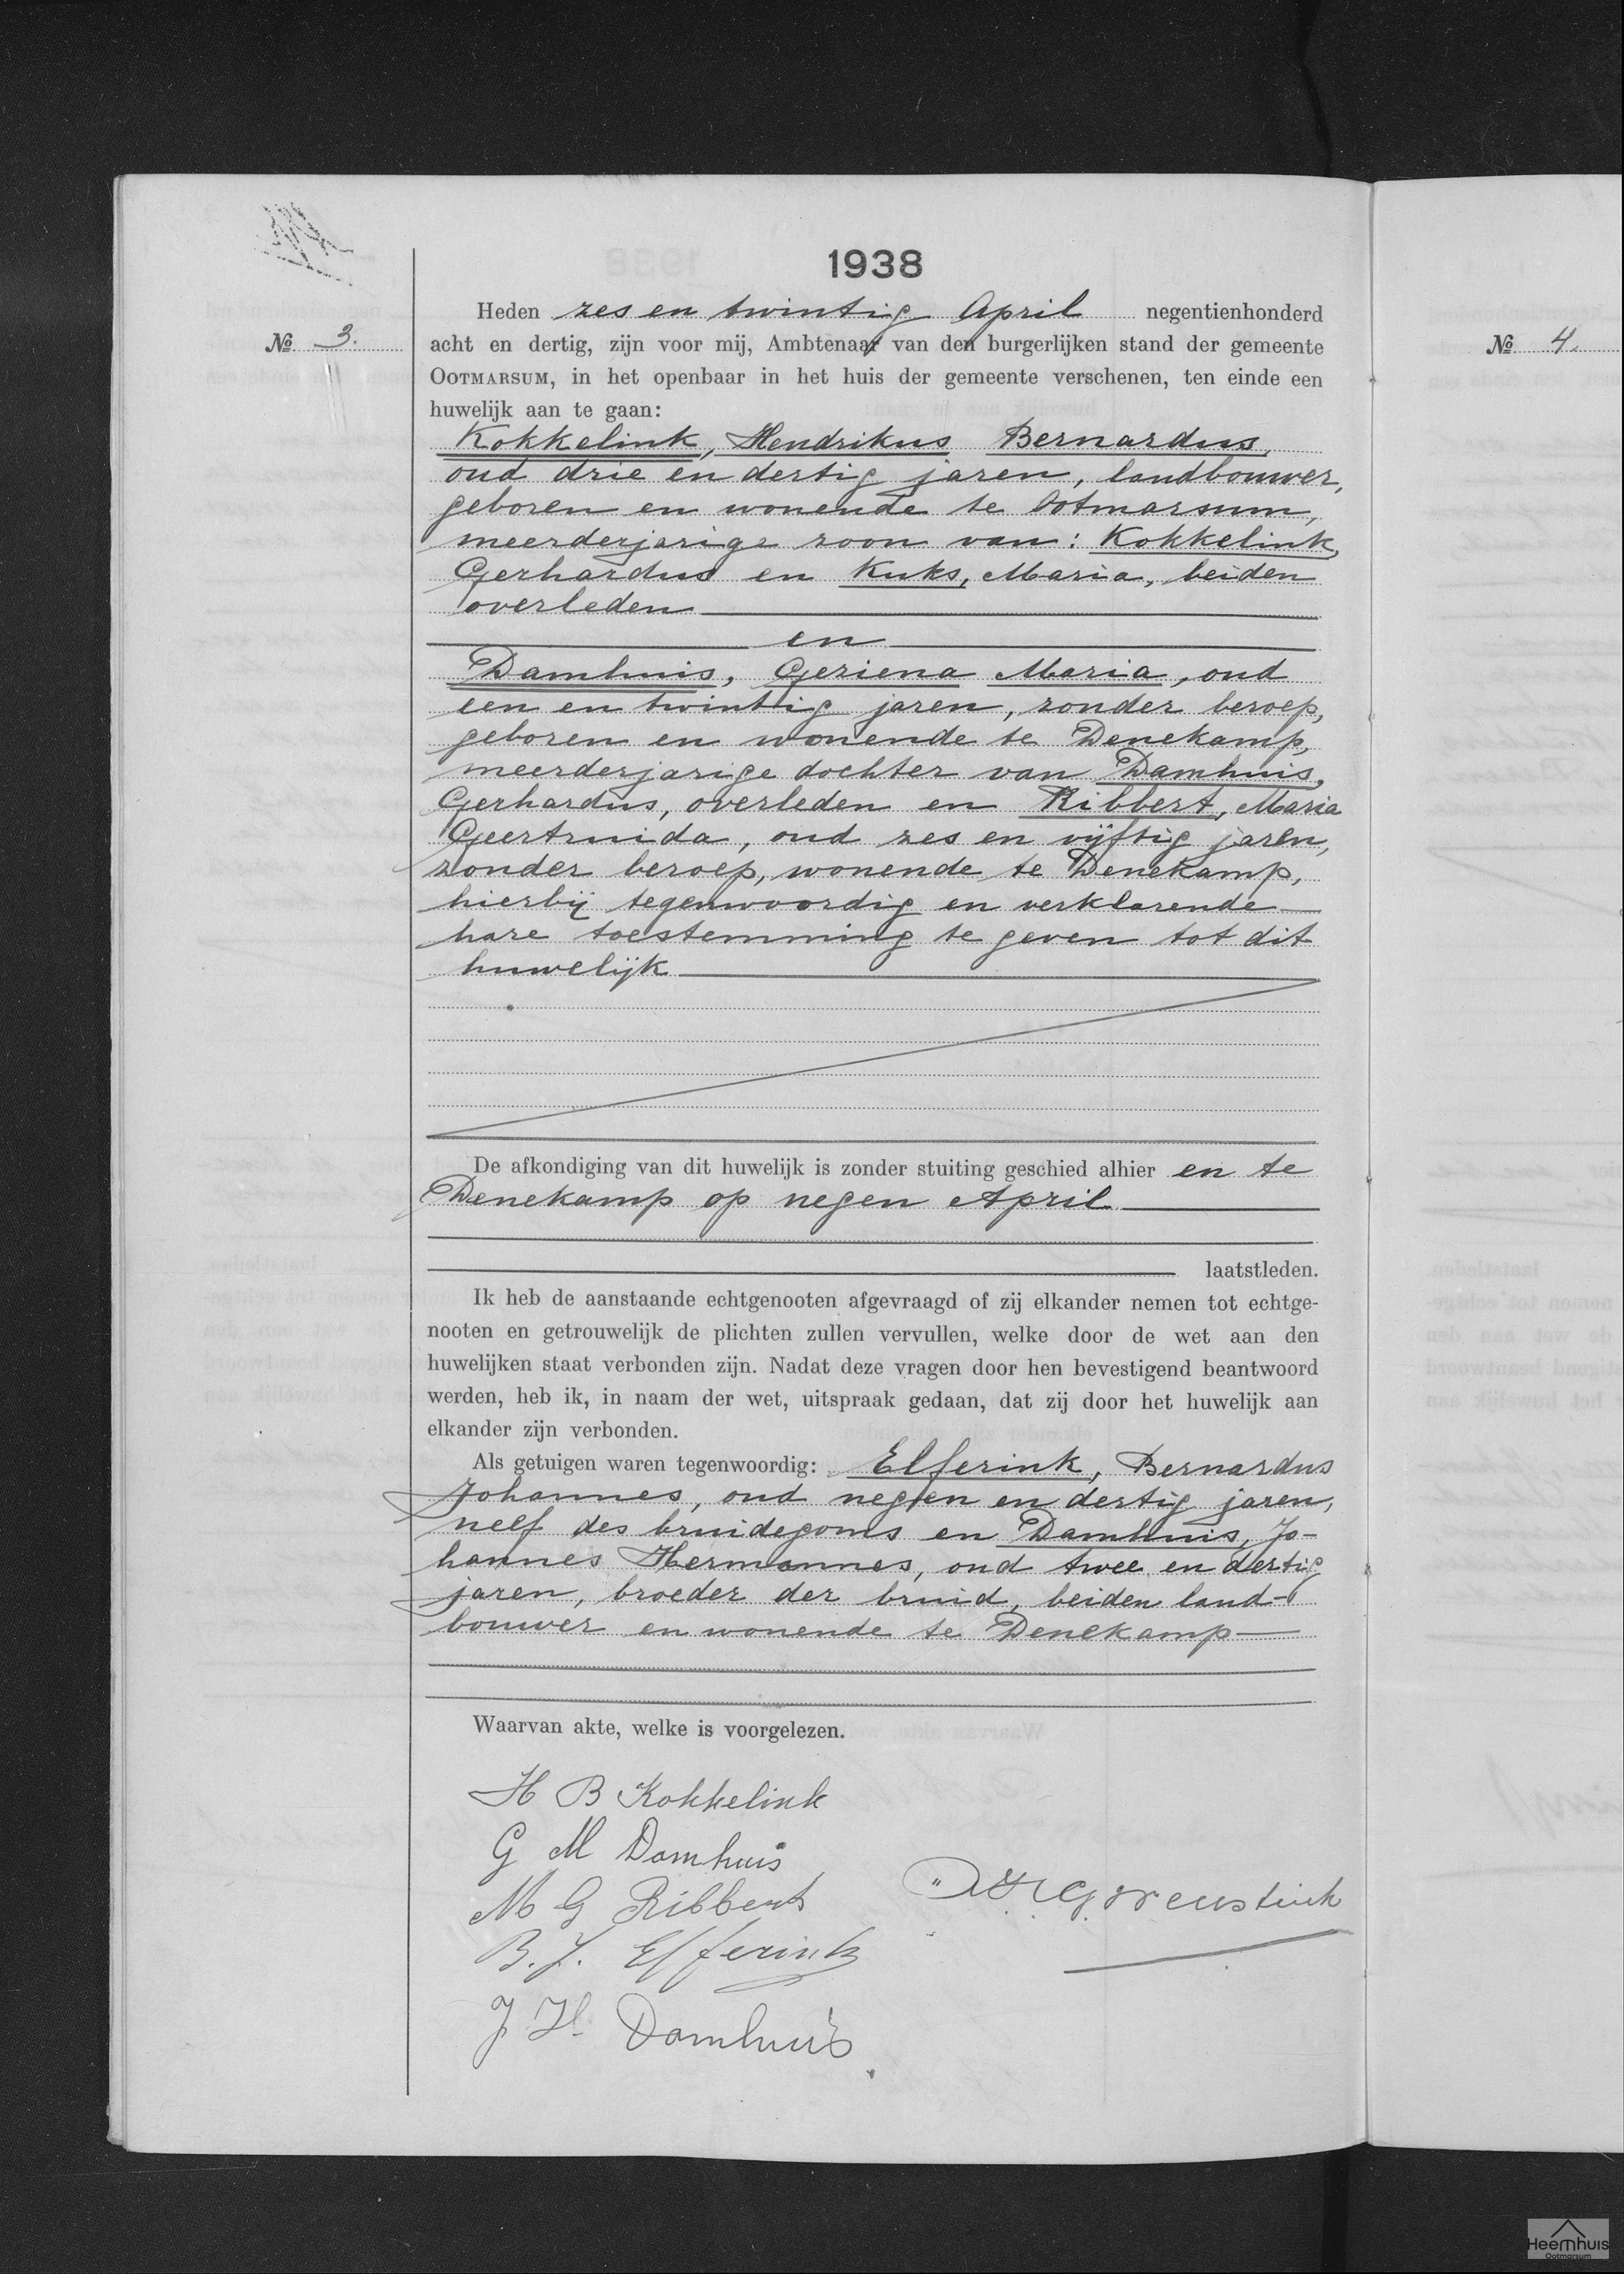 1938
Heden zes en twintig April negentienhonderd
No 3.
acht en dertig, zijn voor mij, Ambtenaar van den burgerlijken stand der gemeente
OOTMARSUM, in het openbaar in het huis der gemeente verschenen, ten einde een
huwelijk aan te gaan:
Kokkelink, Hendrikus Bernardus,
oud drie en dertig jaren, landbouwer,
geboren en wonende te Ootmarsum,
meerderjarige zoon van: Kokkelink,
Gerhardus en Kuks, Maria, beiden
overleden
en
Damhuis, Geriena Maria, oud
een en twintig jaren, zonder beroep,
geboren en wonende te Denekamp,
meerderjarige dochter van Damhuis,
Gerhardus, overleden en Ribbert, Maria
Geertruida, oud zes en vijftig jaren,
zonder beroep, wonende te Denekamp,
hierbij tegenwoordig en verklarende
hare toestemming te geven tot dit
huwelijk
De afkondiging van dit huwelijk is zonder stuiting geschied alhier en te
Denekamp op negen April
laatstleden.
Ik heb de aanstaande echtgenooten afgevraagd of zij elkander nemen tot echtge-
nooten en getrouwelijk de plichten zullen vervullen, welke door de wet aan den
huwelijken staat verbonden zijn. Nadat deze vragen door hen bevestigend beantwoord
werden, heb ik, in naam der wet, uitspraak gedaan, dat zij door het huwelijk aan
elkander zijn verbonden.
Als getuigen waren tegenwoordig: Elferink, Bernardus
Johannes, oud negen en dertig jaren,
neef des bruidegoms en Damhuis, Jo-
hannes Hermannes, oud twee en dertig
jaren, broeder der bruid, beiden land-
bouwer en wonende te Denekamp
Waarvan akte, welke is voorgelezen.
H B Kokkelink
G M Damhuis
M G Ribbert
B. J. Elferink
J H Damhuis
No 4.
Heemhuis
Ootmarsum